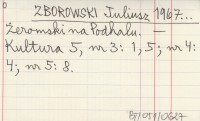 ZBOROWSKI Juliusz 1967...
Żeromski na Podhalu. —
Kultura 5, nr 3: 1, 5; nr 4:
4; nr 5: 8.